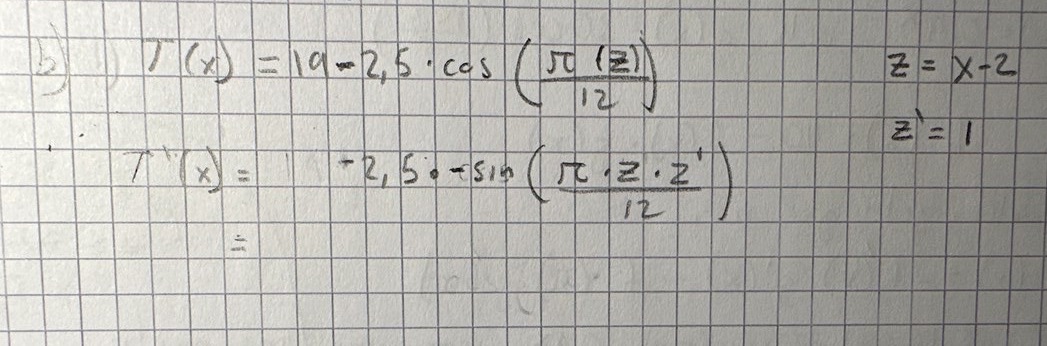 b) T(x) = 19 - 2,5 · cos (π (z) / 12) z = x-2
z' = 1
T'(x) = -2,5 · -sin (π · z · z' / 12)
=